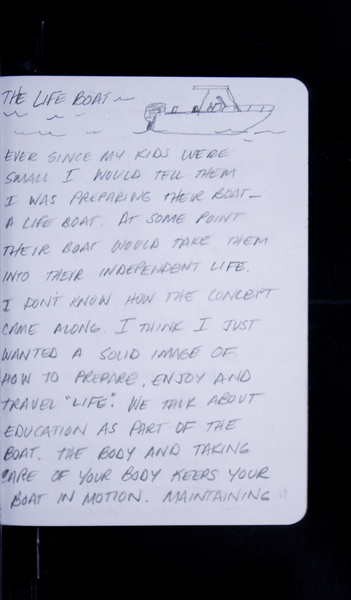 THE LIFE BOAT ~
EVER SINCE MY KIDS WERE
SMALL I WOULD TELL THEM
I WAS PREPARING THEIR BOAT –
A LIFE BOAT. AT SOME POINT
THEIR BOAT WOULD TAKE THEM
INTO THEIR INDEPENDENT LIFE.
I DON'T KNOW HOW THE CONCEPT
CAME ALONG. I THINK I JUST
WANTED A SOLID IMAGE OF
HOW TO PREPARE, ENJOY AND
TRAVEL "LIFE". WE TALK ABOUT
EDUCATION AS PART OF THE
BOAT. THE BODY AND TAKING
CARE OF YOUR BODY KEEPS YOUR
BOAT IN MOTION. MAINTAINING